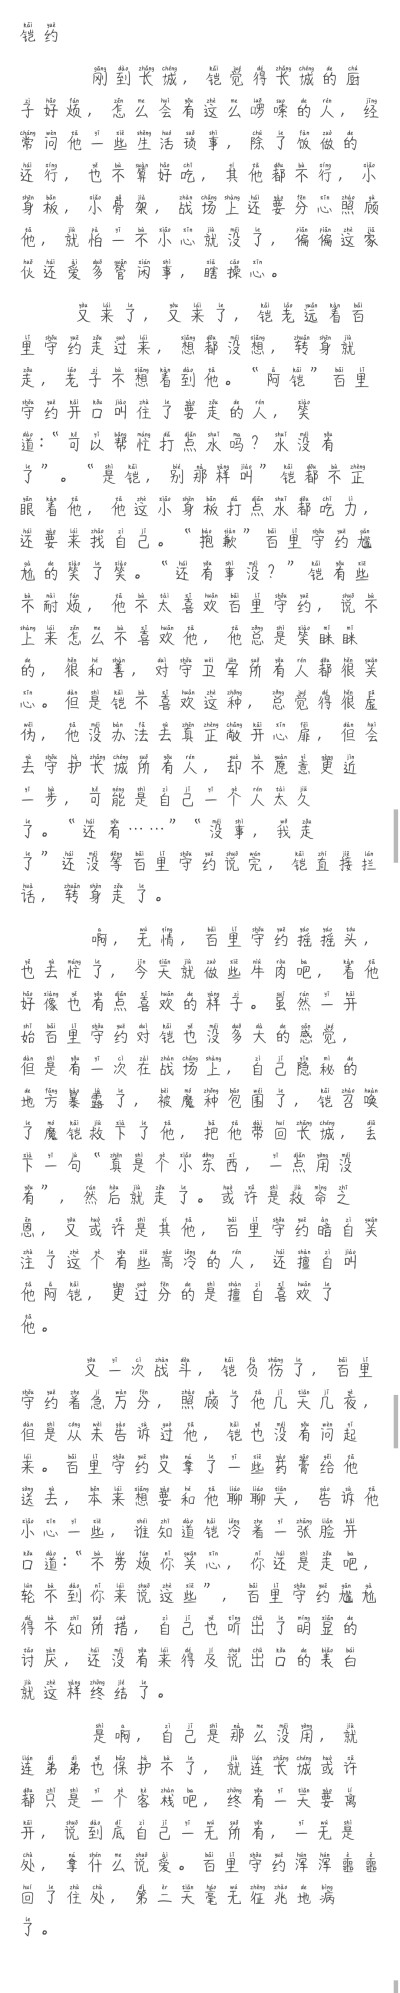 铠约
刚到长城，铠觉得长城的厨
子好烦，怎么会有这么啰嗦的人，经
常问他一些生活琐事，除了饭做的
还行，也不算好吃，其他都不行，小
身板，小骨架，战场上还要分心照顾
他，就怕一不小心就没了，偏偏这家
伙还爱多管闲事，瞎操心。
又来了，又来了，铠老远看百
里守约走过来，想都没想，转身就
走，老子不想看到他。“阿铠”百里
守约开口叫住了要走的人，笑
道：“可以帮忙打点水吗？水没有
了”。“是铠，别那样叫”铠都不正
眼看他，他这小身板打点水都吃力，
还要来找自己。“抱歉”百里守约尴
尬的笑了笑。“还有事没？”铠有些
不耐烦，他不太喜欢百里守约，说不
上来怎么不喜欢他，他总是笑眯眯
的，很和善，对守卫军所有人都很关
心。但是铠不喜欢这种，总觉得很虚
伪，他没办法去真正敞开心扉，但会
去守护长城所有人，却不愿意更近
一步，可能是自己一个人太久
了。“还有……”“没事，我走
了”还没等百里守约说完，铠直接拦
话，转身走了。
啊，无情，百里守约摇摇头，
也去忙了，今天就做些牛肉吧，看他
好像也有点喜欢的样子。虽然一开
始百里守约对铠也没多大的感觉，
但是有一次在战场上，自己隐秘的
地方暴露了，被魔种包围了，铠召唤
了魔铠救下了他，把他带回长城，丢
下一句“真是个小东西，一点用没
有”，然后就走了。或许是救命之
恩，又或许是其他，百里守约暗自关
注了这个有些高冷的人，还擅自叫
他阿铠，更过分的是擅自喜欢了
他。
又一次战斗，铠负伤了，百里
守约着急万分，照顾了他几天几夜，
但是从未告诉过他，铠也没有问起
来。百里守约又拿了一些药膏给他
送去，本来想要和他聊聊天，告诉他
小心一些，谁知道铠冷着一张脸开
口道：“不劳烦你关心，你还是走吧，
轮不到你来说这些”，百里守约尴尬
得不知所措，自己也听出了明显的
讨厌，还没有来得及说出口的表白
就这样终结了。
是啊，自己是那么没用，就
连弟弟也保护不了，就连长城或许
都只是一个客栈吧，终有一天要离
开，说到底自己一无所有，一无是
处，拿什么说爱。百里守约浑浑噩噩
回了住处，第二天毫无征兆地病
了。